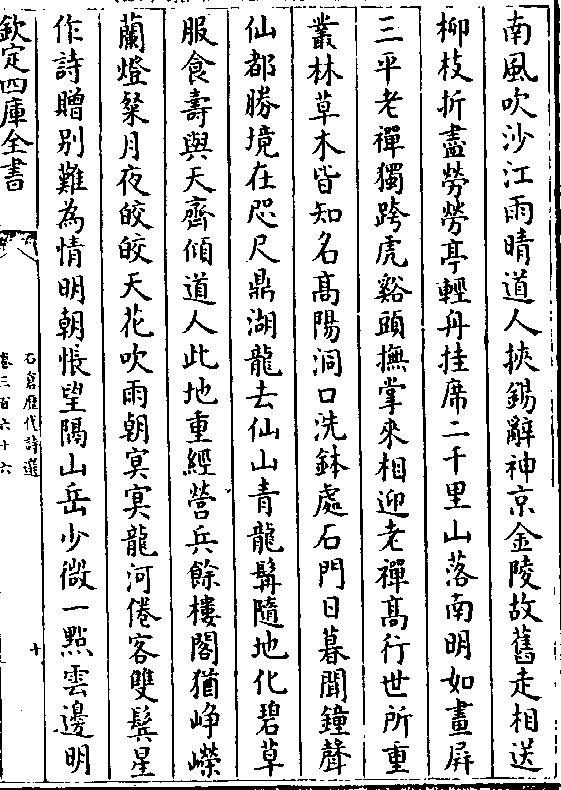 南風吹沙江雨晴道人挾錫辭神京金陵故舊走相送
柳枝折盡勞勞亭輕舟挂席二千里山落南明如畫屏
三平老禪獨跨虎谿頭撫掌來相迎老禪髙行世所重
叢林草木皆知名髙陽洞口洗鉢處石門日暮聞鐘聲
仙都勝境在咫尺鼎湖龍去仙山青龍髯隨地化碧草
服食壽與天齊傾道人此地重經營兵餘樓閣猶崢嶸
蘭燈粲月夜皎皎天花吹雨朝冥冥龍河倦客雙鬂星
作詩贈别難為情明朝悵望隔山岳少微一點雲邊明
欽定四庫全書
石倉歴代詩選
卷三百六十六
十